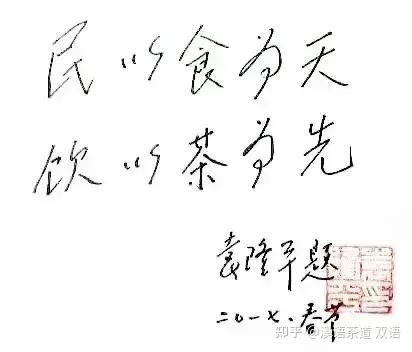 民以食为天
饮以茶为先
袁隆平题
二〇一七.春节
知乎 @汉语茶道 双语